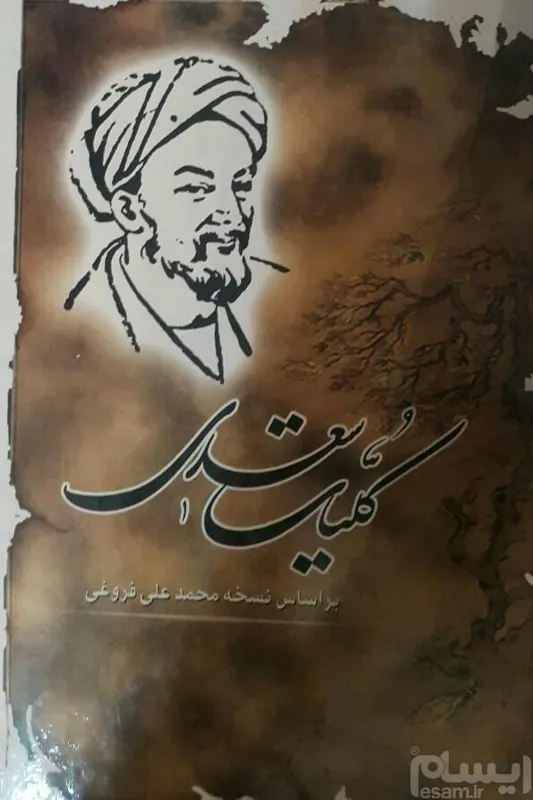 کلیات سعدی
براساس نسخه محمد علی فروغی
ایسام®
esam.ir